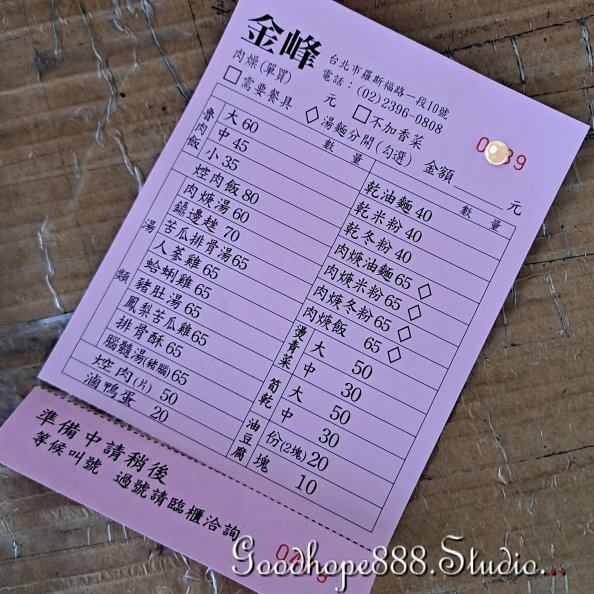 金峰
台北市羅斯福路一段10號
電話：(02)2396-0808
肉燥(單買) 元
□需要餐具 □不加香菜
◇湯麵分開(勾選) 金額 元
數量
數量
魯肉飯
大 60
中 45
小 35
焢肉飯 80
湯類
肉焿湯 60
鼎邊趖 70
苦瓜排骨湯 65
人蔘雞 65
蛤蜊雞 65
豬肚湯 65
鳳梨苦瓜雞 65
排骨酥 65
腦髓湯(豬腦) 65
焢肉(片) 50
滷鴨蛋 20
乾油麵 40
乾米粉 40
乾冬粉 40
肉焿油麵 65 ◇
肉焿米粉 65 ◇
肉焿冬粉 65 ◇
肉焿飯 65 ◇
燙青菜
大 50
中 30
筍乾
大 50
中 30
油豆腐
份(2塊) 20
塊 10
準備中請稍後
等候叫號 過號請臨櫃洽詢
Goodhope888.Studio...